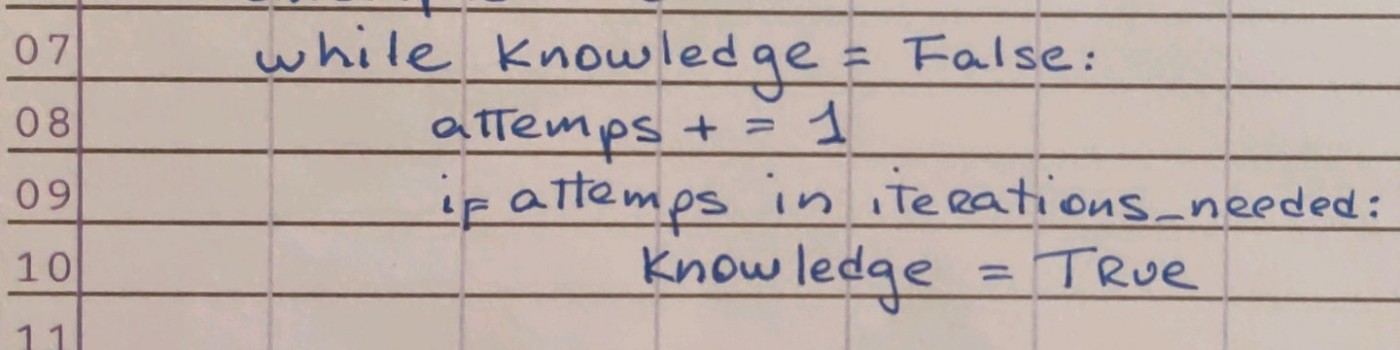 07 while knowledge = False:
08 attemps + = 1
09 if attemps in iterations_needed:
10 knowledge = True
11